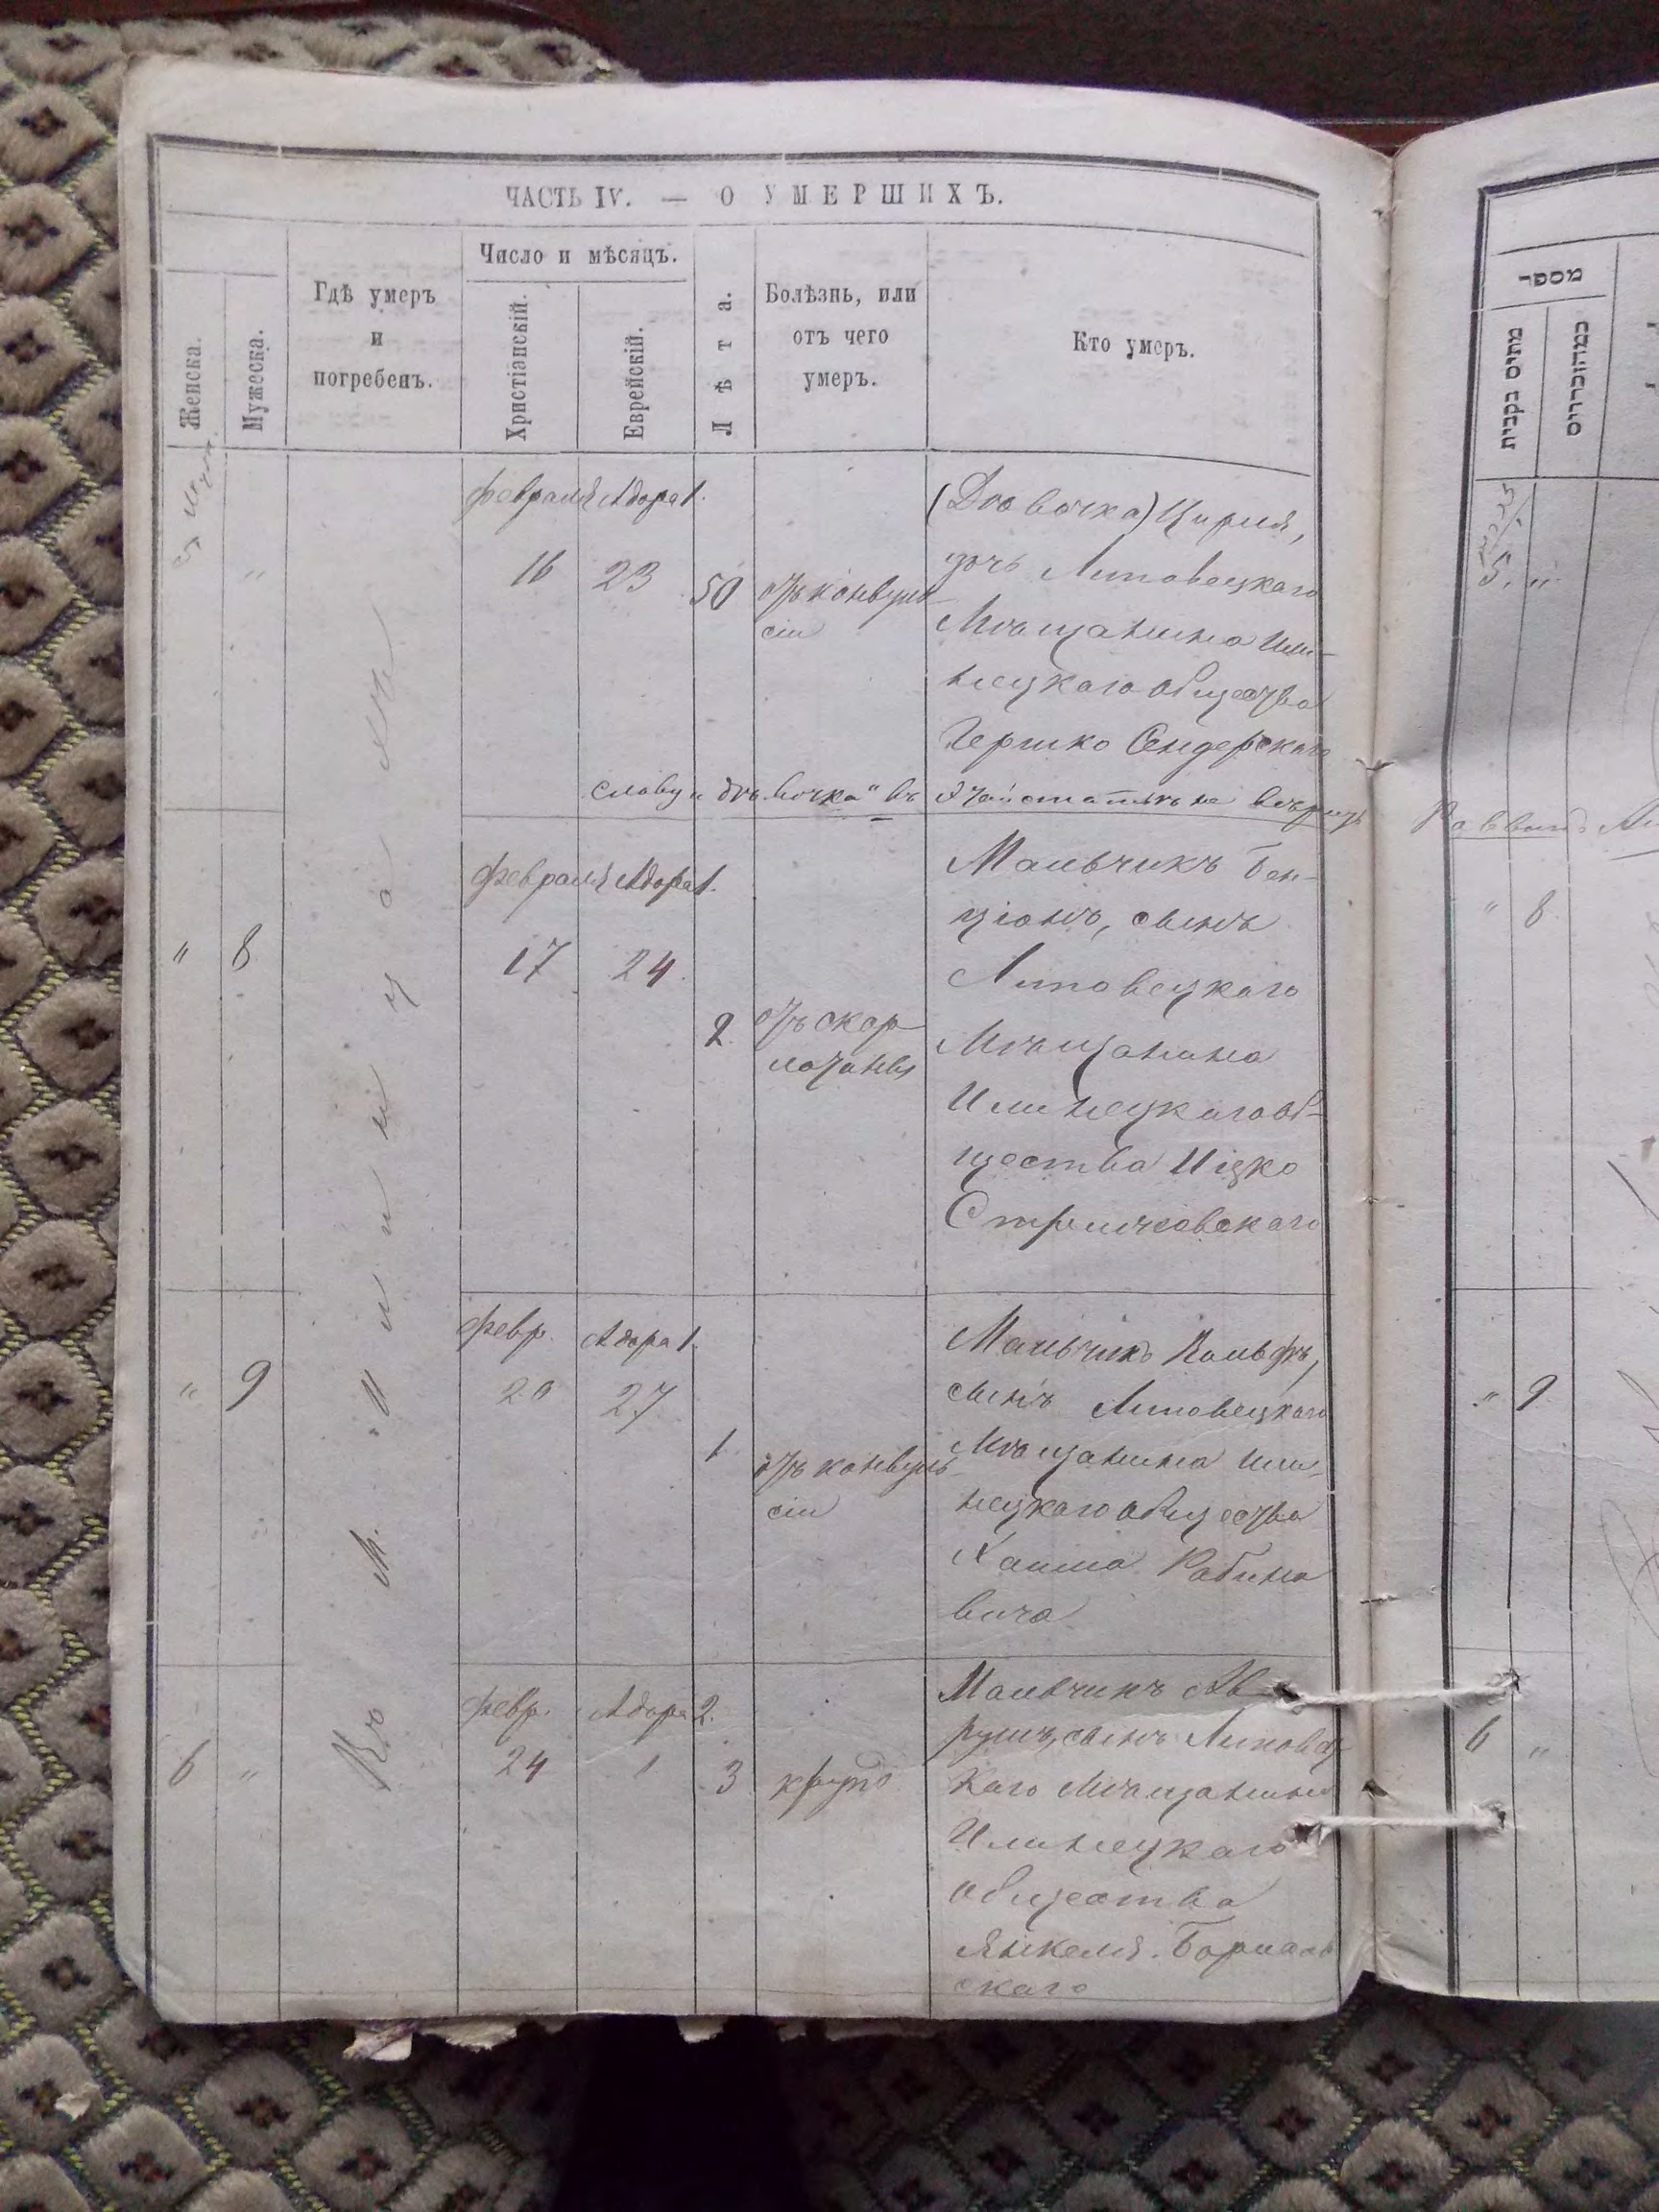 ЧАСТЬ IV. — О УМЕРШИХЪ.
Женска.
Мужеска.
Гдѣ умеръ
и
погребенъ.
Число и мѣсяцъ.
Христіанскій.
Еврейскій.
Лѣта.
Болѣзнь, или
отъ чего
умеръ.
Кто умеръ.
Въ м. Илинцахъ
"
Февраля Адора 1.
16 23
50
отъ конвуль
сіи
(Дѣвочка) Цирля,
дочь Липовецкаго
Мѣщанина Или-
нецкаго общества
Гершко Сендерскаго
слову „дѣвочка" въ
" 8
Февраля Адора 1.
17 24
2
отъ скор
латины
Мальчикъ Бен-
ціонъ, сынъ
Липовецкаго
Мѣщанина
Илинецкаго об-
щества Ицко
" 9
Февр. Адора 1.
20 27
1
отъ конвуль-
сіи
Мальчикъ Вольфъ,
сынъ Липовецкаго
Мѣщанина Или-
нецкаго общества
Хаима Рабино
вича
6 "
Февр. Адора 2.
24 1
3
крупъ
Мальчикъ Ав-
румъ, сынъ Липовец
каго Мѣщанина
Илинецкаго
общества
Янкеля
скаго
מספר
מהנקבות
מהזכרים
5. "
Раввинъ
" 8
" 9
6 "